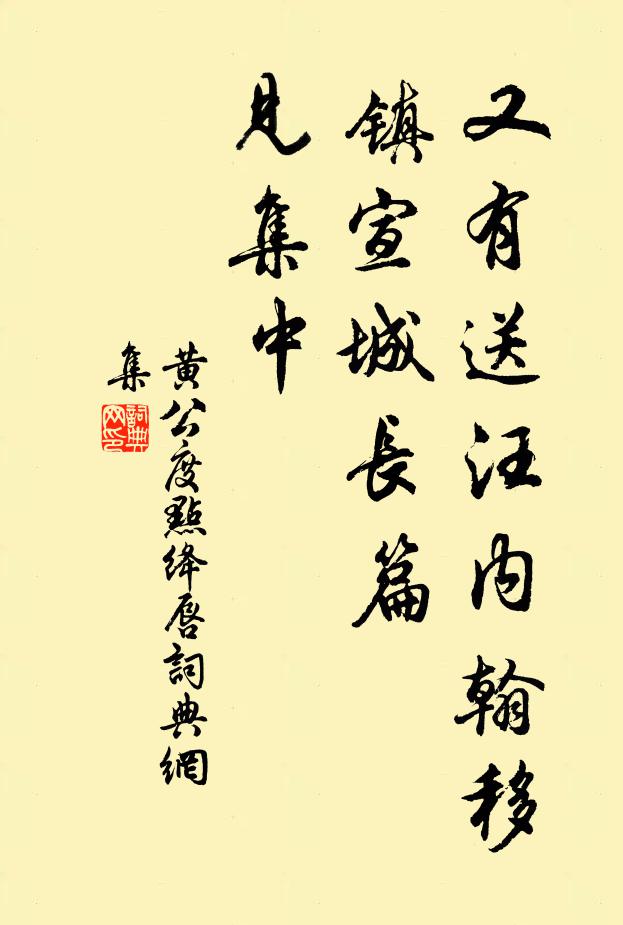 又有送汪内翰移
镇宣城長篇
見集中
黄公度點绛唇詞典網
集
詞典
网印